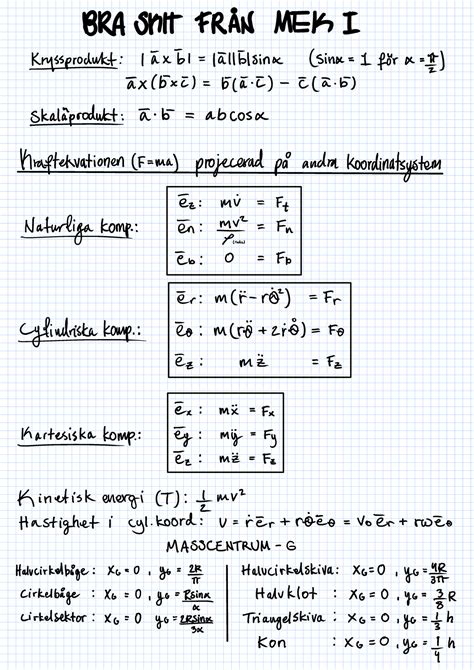 BRA SHIT FRÅN MEK I
Kryssprodukt: |a̅ x b̅| = |a̅||b̅|sinα (sinα = 1 för α = π/2)
a̅ x (b̅ x c̅) = b̅(a̅·c̅) - c̅(a̅·b̅)
Skalärprodukt: a̅·b̅ = abcosα
Kraftekvationen (F=ma) projecerad på andra koordinatsystem
Naturliga komp.:
e̅z: mv̇ = Ft
e̅n: mv²/ρ = Fn
e̅b: 0 = Fb
Cylindriska komp.:
e̅r: m(r̈ - rθ̇²) = Fr
e̅θ: m(rθ̈ + 2ṙθ̇) = Fθ
e̅z: mz̈ = Fz
Kartesiska komp.:
e̅x: mẍ = Fx
e̅y: mÿ = Fy
e̅z: mz̈ = Fz
Kinetisk energi (T): 1/2 mv²
Hastighet i cyl.koord: v = ṙe̅r + rθ̇e̅θ = v₀e̅r + rωe̅θ
MASSCENTRUM - G
Halvcirkelbåge: xG = 0, yG = 2R/π
Cirkelbåge: xG = 0, yG = Rsinα/α
Cirkelsektor: xG = 0 yG = 2Rsinα/3α
Halvcirkelskiva: xG = 0, yG = 4R/3π
Halvklot: xG = 0, yG = 3/8 R
Triangelskiva: xG = 0, yG = 1/3 h
Kon: xG = 0, yG = 1/4 h